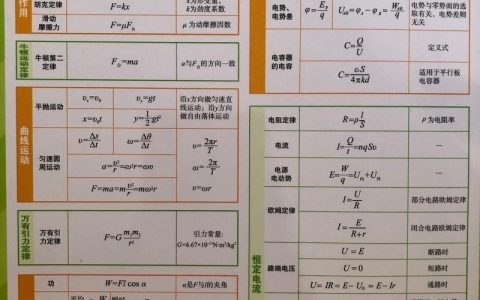 作用
胡克定律
F=kx
x为形变量,
k为劲度系数
滑动
摩擦力
F=μF
μ为动摩擦因数
牛顿运动定律
牛顿第二
定律
F合=ma
a与F的方向一致
曲线运动
平抛运动
vx=v0 vy=gt
x=v0t y=1/2gt²
沿x方向做匀速直
线运动;沿y方向
做自由落体运动
匀速圆
周运动
v=Δs/Δt ω=Δθ/Δt
a=v²/r=ω²r=ωv
F=ma=mv²/r=mω²r
v=2πr/T
ω=2π/T
v=ωr
万有引力定律
万有引
力定律
F=Gm1m2/r²
引力常量:
G=6.67×10⁻¹¹N·m²/kg²
功
W=Fl cos α
α是F与l的夹角
电势、
电势差
电势与零势面的选
取有关,电势差则
无关
电容器
的电容
C=Q/U
定义式
C=εrS/4πkd
适用于平行板
电容器
恒定电流
电阻定律
R=ρl/S
ρ为电阻率
电流
I=Q/t=nqSv
—
电源
电动势
E=W/q=U外+U内
—
欧姆定律
I=U/R
部分电路欧姆定律
I=E/R+r
闭合电路欧姆定律
路端电压
U=E
断路时
U=0
短路时
U=IR=E-U内=E-Ir
通路时